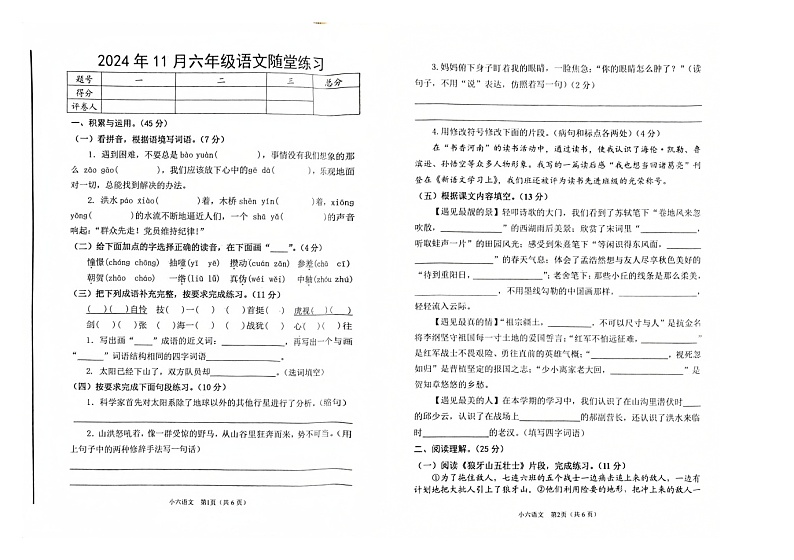 2024 年 11 月六年级语文随堂练习
题号 一 二 三 总分
得分
评卷人
一、积累与运用。(45 分)
(一) 看拼音，根据语境写词语。(7 分)
1．遇到困难，不要总是bào yuàn( )，事情没有我们想象的那
么zāo( )，我们应该放下心中的gē dā( )，乐观地面
对一切，总能找到解决的办法。
2．洪水páo xiào( )着，木桥 shēn yín( )着，xiōng
yǒng( )的水流不断地逼近人们，一个 shā yǎ( )的声音
响起：“群众先走！党员维持纪律！”
(二) 给下面加点的字选择正确的读音，在下面画“____”。(4 分)
憧憬(chóng chōng) 抽噎(yī yē) 攒动(cuán zǎn) 参差(chā cī)
朝贺(zhāo cháo) 一绺(liǔ lǜ) 真伪(wéi wěi) 中轴(zhóu zhú)
(三) 把下列成语补充完整，按要求完成练习。(11 分)
( )( )自怜 技( )( )一( ) ( )首挺( ) 虎视( )( )
剑( )( )张 ( )海一( ) ( )战犹( ) 心( )( )往
1．写出画“____”成语的近义词：____________，再写出一个与画
“______”词语结构相同的四字词语____________。
2．太阳已经下山了，双方队员却____________。(选词填空)
(四) 按要求完成下面句段练习。(10 分)
1．科学家首先对太阳系除了地球以外的其他行星进行了分析。(缩句)
2．山洪怒吼着，像一群受惊的野马，从山谷里狂奔而来，势不可当。(用
上句子中的两种修辞手法写一句话)
小六语文 第1页（共 6 页）
3.妈妈俯下身子盯着我的眼睛，一脸焦急：“你的眼睛怎么肿了？”(读
句子，不用“说”表达，仿照着写一句)(2 分)
4.用修改符号修改下面的片段。(病句和标点各两处)(4 分)
在“书香河南”的读书活动中，使我认识了海伦·凯勒、鲁
滨逊、孙悟空等众多人物形象。我写的一篇读后感“我也想当回诸葛亮”刊
登在《新语文学习上》，我们班还被评为读书先进班级的光荣称号。
(五) 根据课文内容填空。(13 分)
【遇见最靓的景】轻叩诗歌的大门，我们看到了苏轼笔下“卷地风来忽
吹散，____________”的西湖雨后美景；欣赏了宋词里“____________，
听取蛙声一片”的田园风光；感受到朱熹笔下“等闲识得东风面，________
____________”的春天气息；体会了孟浩然想与友人尽享秋色美好的
“待到重阳日，____________”；老舍笔下：那些小丘的线条是那么柔美，
____________，不用墨线勾勒的中国画那样，____________，
轻轻流入云际。
【遇见最真的情】“祖宗疆土，____________，不可以尺寸与人”是抗金名
将李纲坚守祖国每一寸土地的爱国誓言；“红军不怕远征难，____________”
是红军战士不畏艰险、勇往直前的英雄气概；“____________，视死忽
如归”是曹植坚定的报国之志；“少小离家老大回，____________”是
贺知章悠悠的乡愁。
【遇见最美的人】在本学期的学习中，我们认识了在山沟里潜伏时____
的邱少云，认识了在战场上____________的郝副营长，还认识了洪水来临
时____________的老汉。(填写四字词语)
二、阅读理解。(25 分)
(一) 阅读《狼牙山五壮士》片段，完成练习。(11 分)
①为了拖住敌人，七连六班的五个战士一边痛击追上来的敌人，一边有
计划地把大批人引上了狼牙山。②他们利用险要的地形，把冲上来的敌人一
小六语文 第2页（共 6 页）